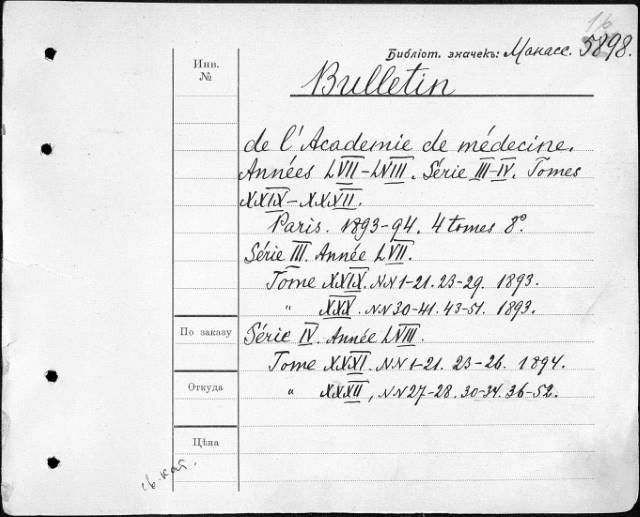 16
Библіот. значекъ: Манасс. 5898.
Инв.
№
Bulletin
de l'Academie de médecine.
Années LVII-LVIII. Série III-IV. Tomes
XXIX-XXXII.
Paris. 1893-94. 4 tomes 8°.
Série III. Année LVII.
Tome XXIX. NN 1-21. 23-29. 1893.
" XXX. NN 30-41. 43-51. 1893.
По заказу
Série IV. Année LVIII.
Tome XXXI. NN 1-21. 23-26. 1894.
Откуда
" XXXII, NN 27-28. 30-34. 36-52.
Цѣна
въ кат.